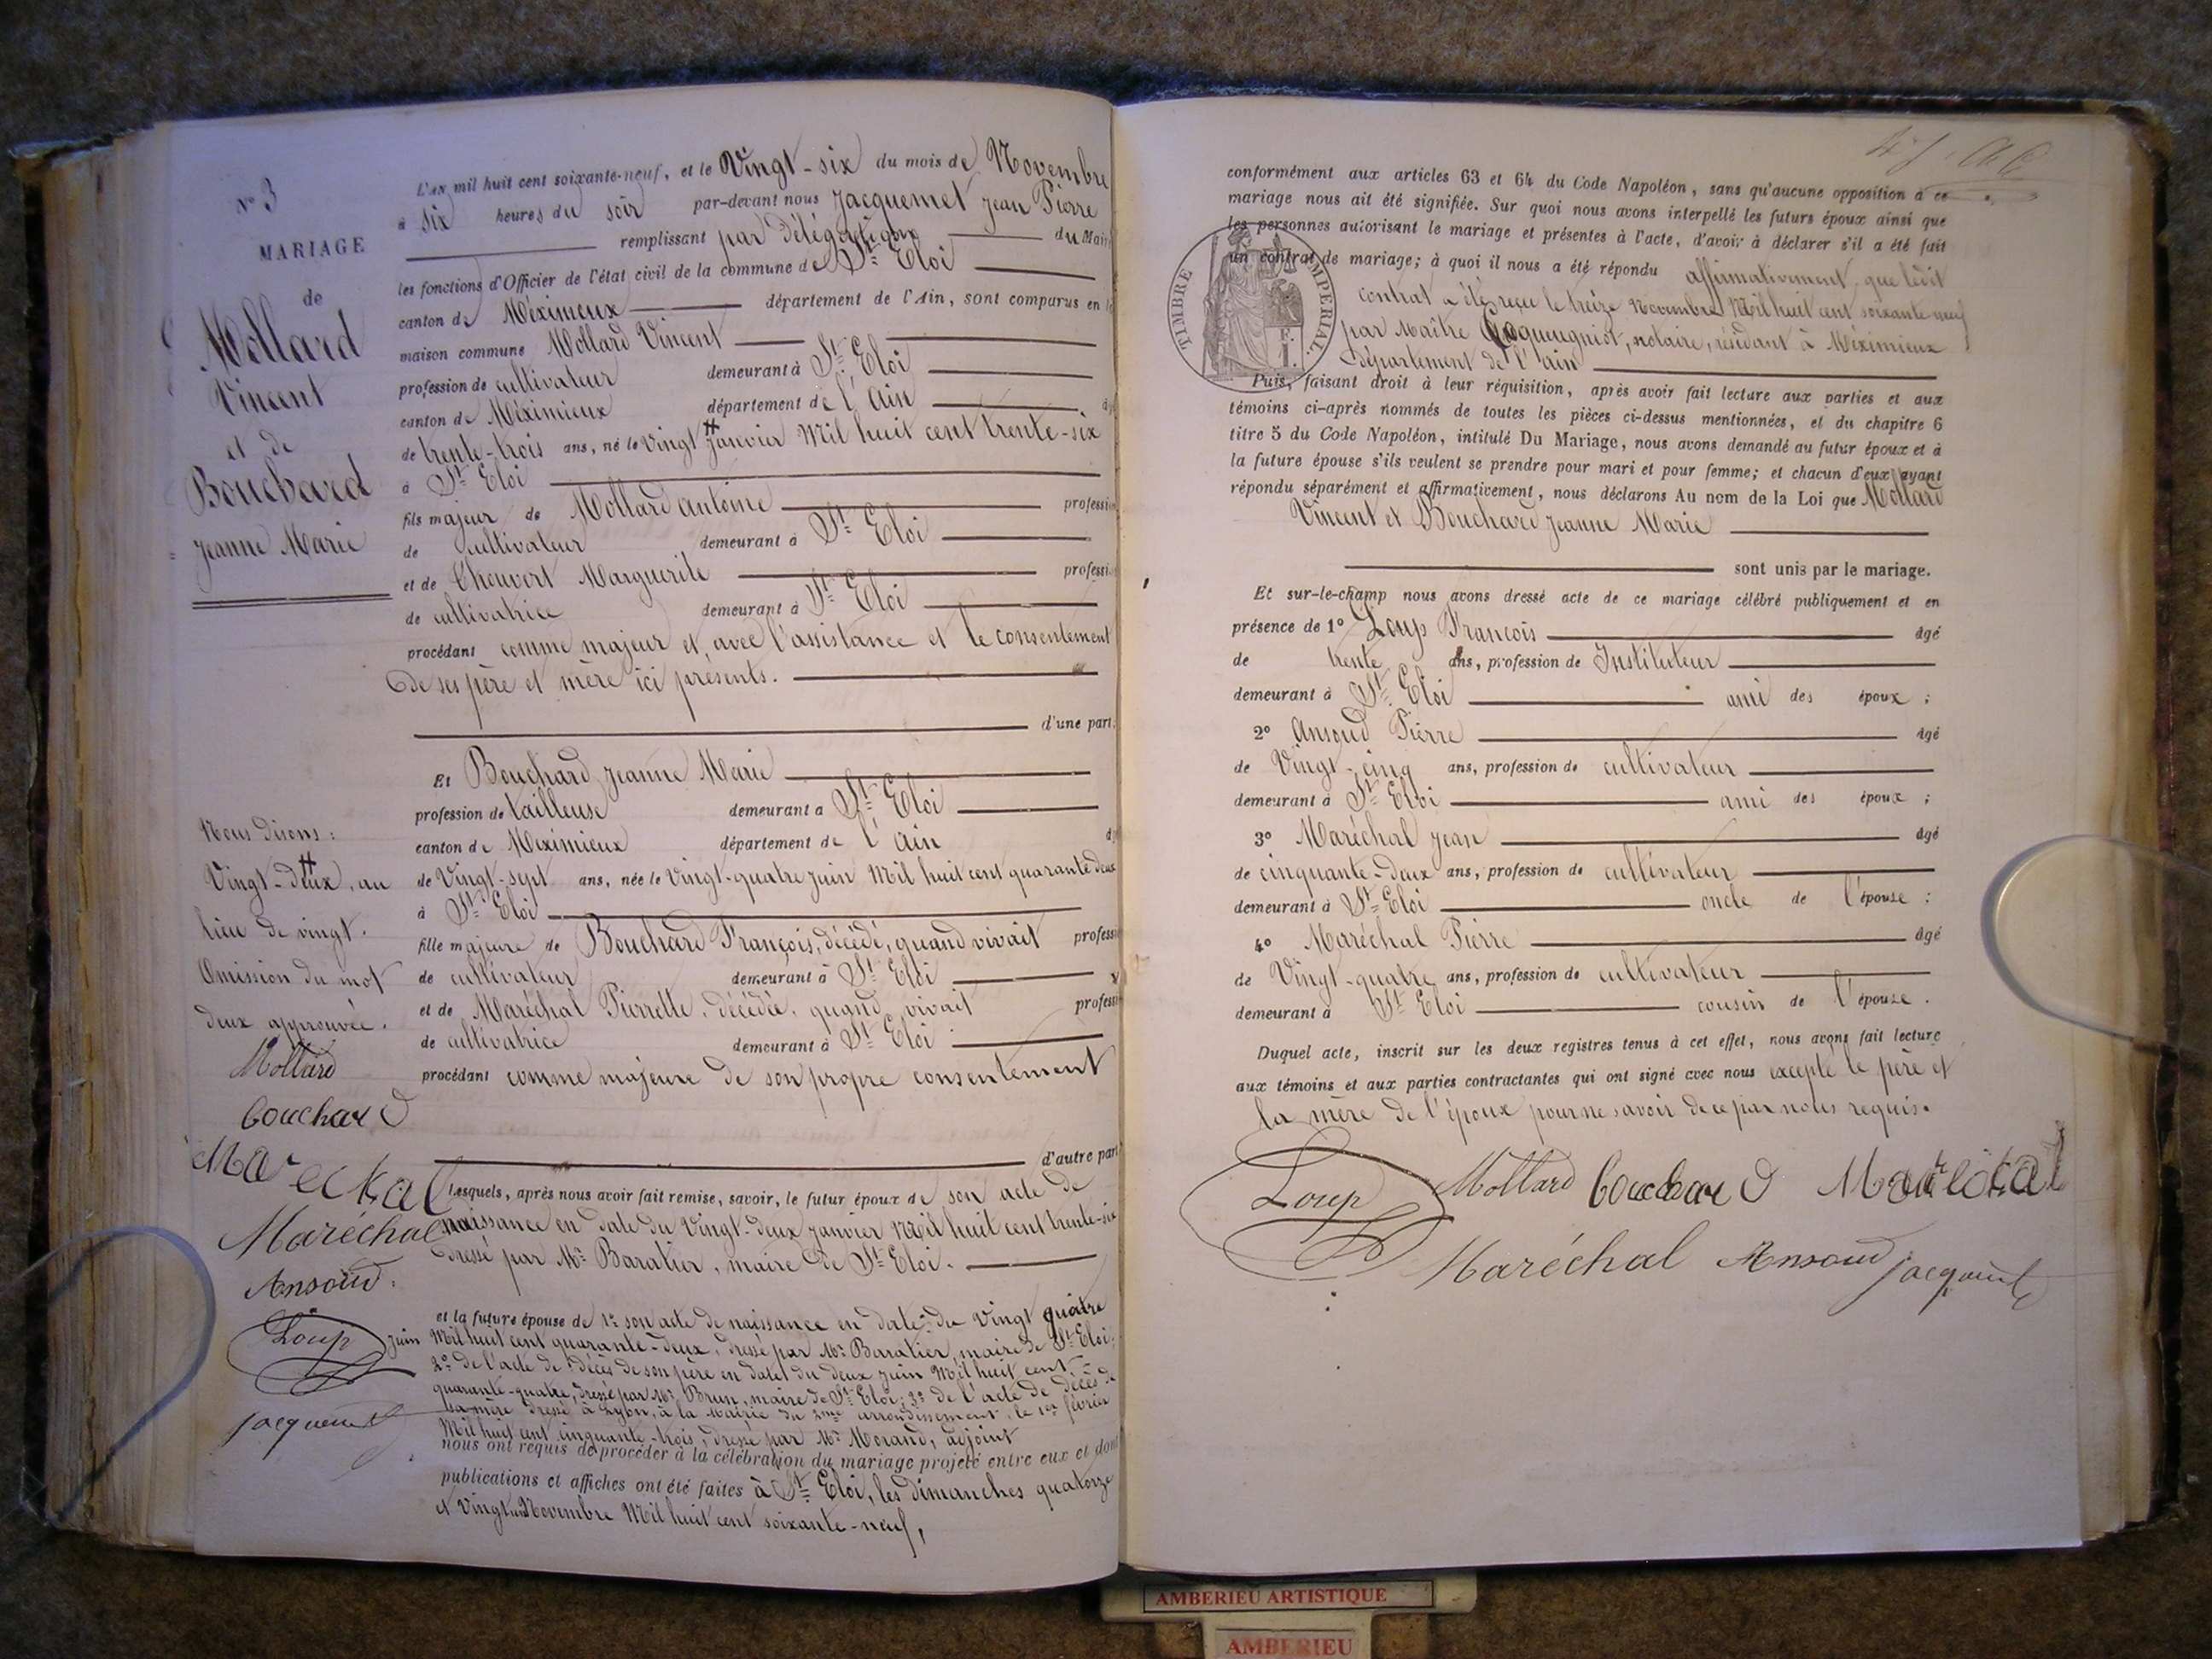 N° 3
MARIAGE
de
Mollard
Vincent
et de
Bouchard
Jeanne Marie
L'an mil huit cent soixante-neuf, et le Vingt-six du mois de Novembre
à six heures du soir par-devant nous Jacquemet Jean Pierre
remplissant par délégation du Maire
les fonctions d'Officier de l'état civil de la commune de St Eloi
canton de Méximieux département de l'Ain, sont comparus en la
maison commune Mollard Vincent
profession de cultivateur demeurant à St Eloi
canton de Méximieux département de l'Ain
de trente-trois ans, né le vingt # janvier Mil huit cent trente-six
à St Eloi
fils majeur de Mollard Antoine profession
de cultivateur demeurant à St Eloi
et de Chouvert Marguerite profession
de cultivatrice demeurant à St Eloi
procédant comme majeur et, avec l'assistance et le consentement
de ses père et mère ici présents.
d'une part.
Et Bouchard Jeanne Marie
profession de tailleuse demeurant à St Eloi
canton de Méximieux département de l'Ain
de Vingt-sept ans, née le Vingt-quatre juin Mil huit cent quarante deux
à St Eloi
fille majeure de Bouchard François, décédé, quand vivait profession
de cultivateur demeurant à St Eloi
et de Maréchal Pierrette, décédée, quand vivait profession
de cultivatrice demeurant à St Eloi
procédant comme majeure de son propre consentement
d'autre part
Nous disons :
Vingt-deux #, au
lieu de vingt.
Omission du mot
deux approuvée.
Mollard
bouchard
Marechal
Maréchal
Ansoud
Loup
Jacquemet
Lesquels, après nous avoir fait remise, savoir, le futur époux de son acte de
naissance en date du Vingt-deux janvier Mil huit cent trente-six
dressé par Mr Baratier, maire de St Eloi.
et la future épouse de 1° son acte de naissance en date du Vingt quatre
juin Mil huit cent quarante-deux, dressé par Mr Baratier, maire de St Eloi;
2° de l'acte de décès de son père en date du deux juin Mil huit cent
quarante-quatre, dressé par Mr Brun, maire de St Eloi; 3° de l'acte de décès de
sa mère dressé à Lyon, à la Mairie du 2me arrondissement, le 1er février
Mil huit cent cinquante-trois, dressé par Mr Morand, adjoint
nous ont requis de procéder à la célébration du mariage projeté entre eux et dont
publications et affiches ont été faites à St Eloi, les dimanches quatorze
et Vingt un Novembre Mil huit cent soixante-neuf,
conformément aux articles 63 et 64 du Code Napoléon, sans qu'aucune opposition à ce
mariage nous ait été signifiée. Sur quoi nous avons interpellé les futurs époux ainsi que
les personnes autorisant le mariage et présentes à l'acte, d'avoir à déclarer s'il a été fait
un contrat de mariage; à quoi il nous a été répondu affirmativement, que ledit
contrat a été reçu le treize Novembre Mil huit cent soixante neuf
par Maître Coqueugniot, notaire, résidant à Méximieux
département de l'Ain
TIMBRE IMPERIAL.
F.
1.
Puis, faisant droit à leur réquisition, après avoir fait lecture aux parties et aux
témoins ci-après nommés de toutes les pièces ci-dessus mentionnées, et du chapitre 6
titre 5 du Code Napoléon, intitulé Du Mariage, nous avons demandé au futur époux et à
la future épouse s'ils veulent se prendre pour mari et pour femme; et chacun d'eux ayant
répondu séparément et affirmativement, nous déclarons Au nom de la Loi que Mollard
Vincent et Bouchard Jeanne Marie
sont unis par le mariage.
Et sur-le-champ nous avons dressé acte de ce mariage célébré publiquement et en
présence de 1° Loup François âgé
de trente ans, profession de Instituteur
demeurant à St Eloi ami des époux ;
2° Ansoud Pierre âgé
de Vingt-cinq ans, profession de cultivateur
demeurant à St Eloi ami des époux ;
3° Maréchal Jean âgé
de cinquante-deux ans, profession de cultivateur
demeurant à St Eloi oncle de l'épouse ;
4° Maréchal Pierre âgé
de Vingt-quatre ans, profession de cultivateur
demeurant à St Eloi cousin de l'épouse.
Duquel acte, inscrit sur les deux registres tenus à cet effet, nous avons fait lecture
aux témoins et aux parties contractantes qui ont signé avec nous excepté le père et
la mère de l'époux pour ne savoir de ce par nous requis.
Loup Mollard bouchard Marechal
Maréchal Ansoud Jacquemet
AMBERIEU ARTISTIQUE
AMBERIEU